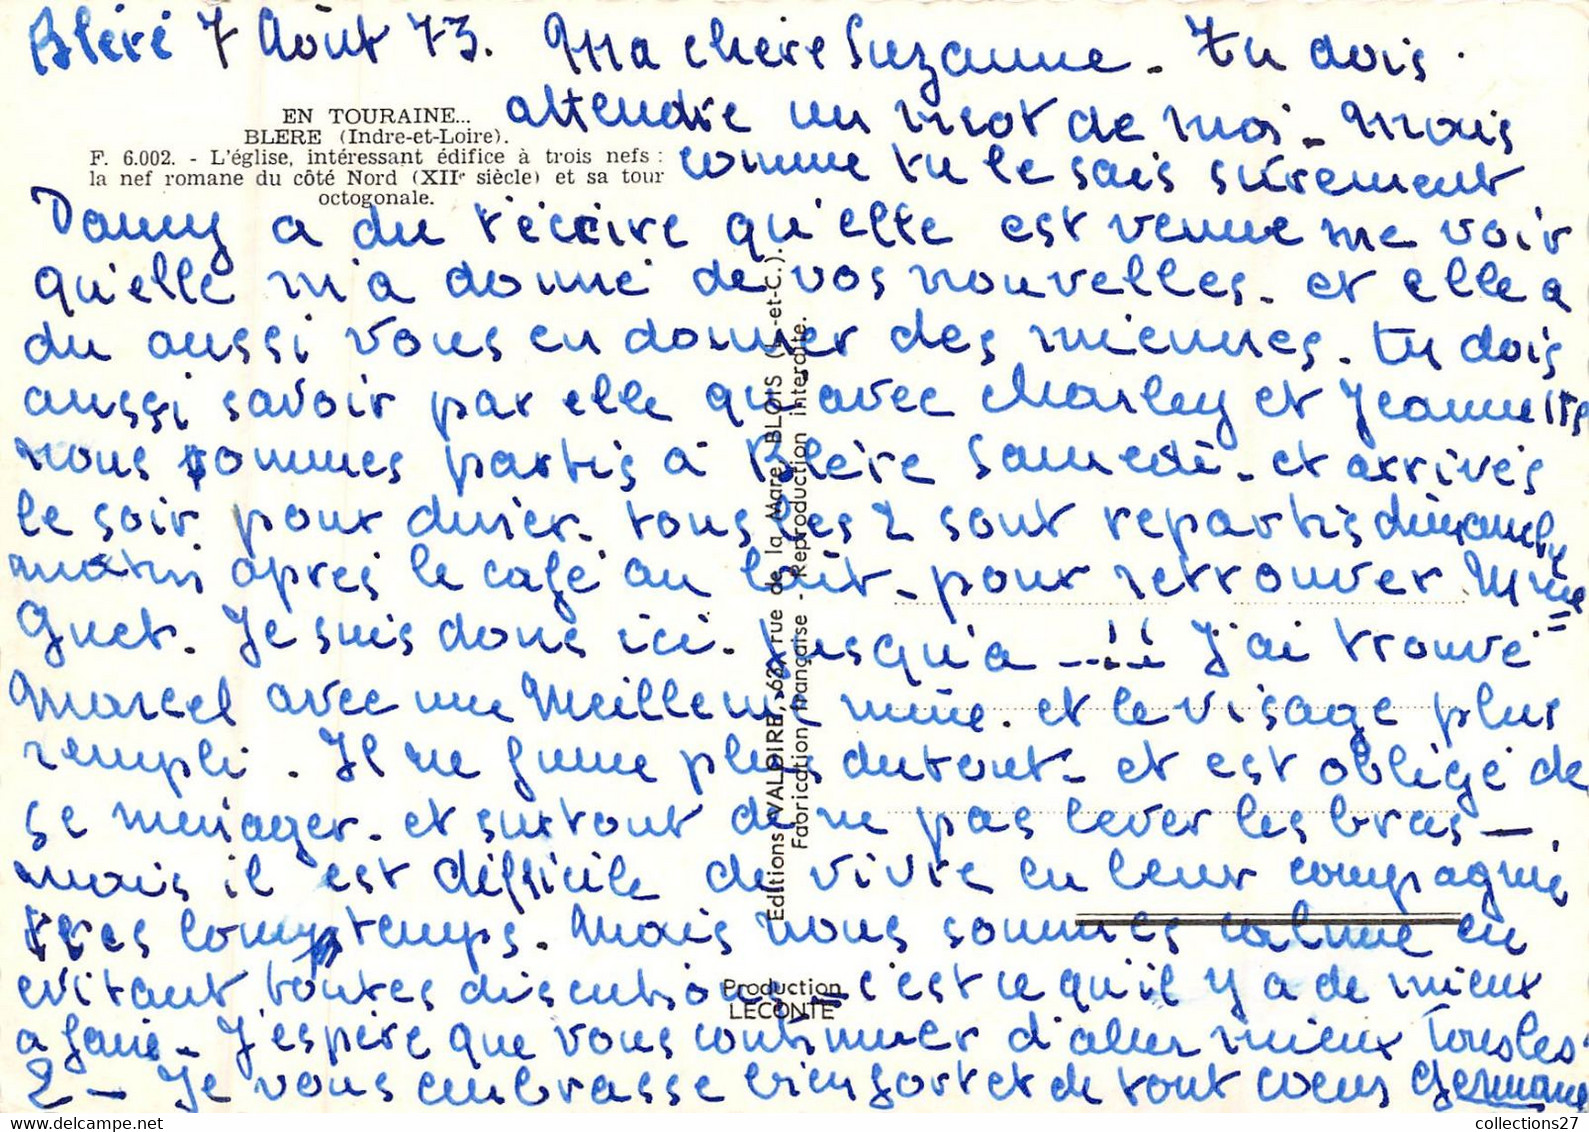 Bléré 7 Août 73. Ma chère Suzanne. Tu dois
attendre un mot de moi. Mais
EN TOURAINE...
BLERE (Indre-et-Loire).
F. 6.002. - L'église, intéressant édifice à trois nefs :
la nef romane du côté Nord (XIIe siècle) et sa tour
octogonale.
comme tu le sais surement
Dany a du t'écrire qu'elle est venue me voir
qu'elle m'a donné de vos nouvelles. et elle a
du aussi vous en donner des miennes. tu dois
aussi savoir par elle que avec Charley et Jeanne
nous sommes partis à Bléré Samedi. et arrivés
le soir pour diner. tous les 2 sont repartis dimanche
matin apres le café au lait. pour retrouver Mme
Guet. Je suis donc ici. Jusqu'a ...!! J'ai trouvé
Marcel avec une Meilleure mine. et le visage plus
rempli. Il ne fume plus du tout. et est obligé de
se menager. et surtout de ne pas lever les bras —
mais il est difficile de vivre en leur compagnie
tres longtemps. Mais nous sommes calme en
evitant toutes discutions — c'est ce qu'il y a de mieux
a faire. J'espère que vous continuer d'aller mieux Tous les
2 — Je vous embrasse bien fort et de tout coeur Germaine
Editions VALOIRE, 62, rue de la Mare, BLOIS (L.-et-C.).
Fabrication française - Reproduction interdite.
Production
LECONTE
collections27